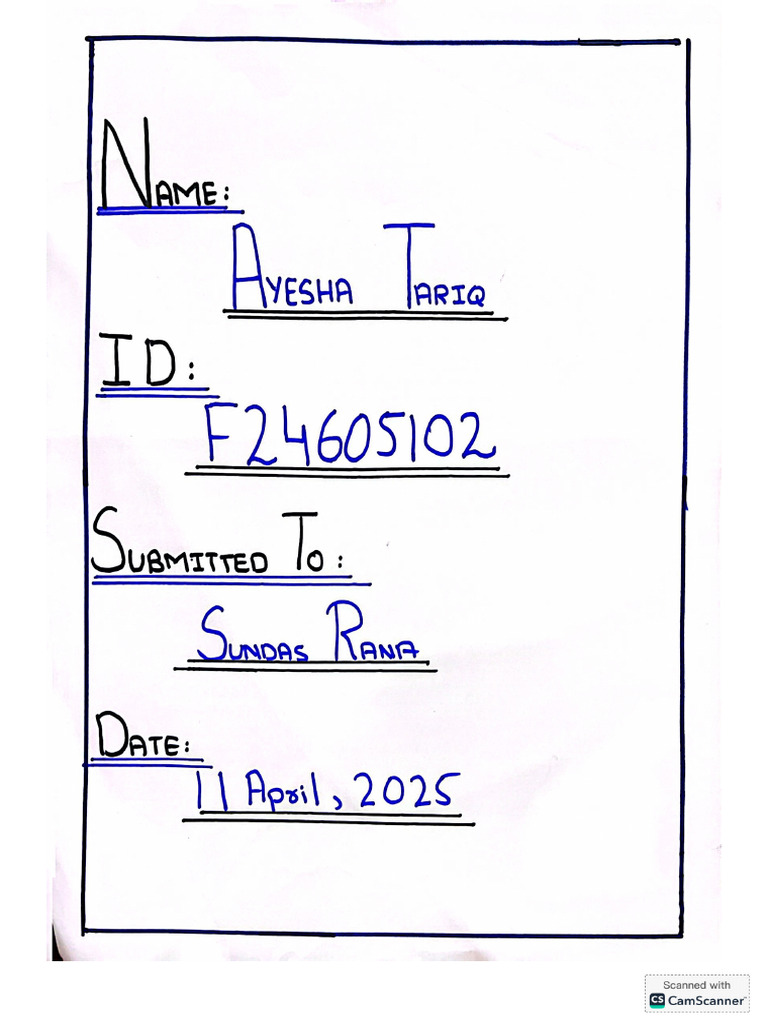 NAME:
AYESHA TARIQ
ID:
F24605102
SUBMITTED TO:
SUNDAS RANA
DATE:
11 April, 2025
Scanned with
CS CamScanner